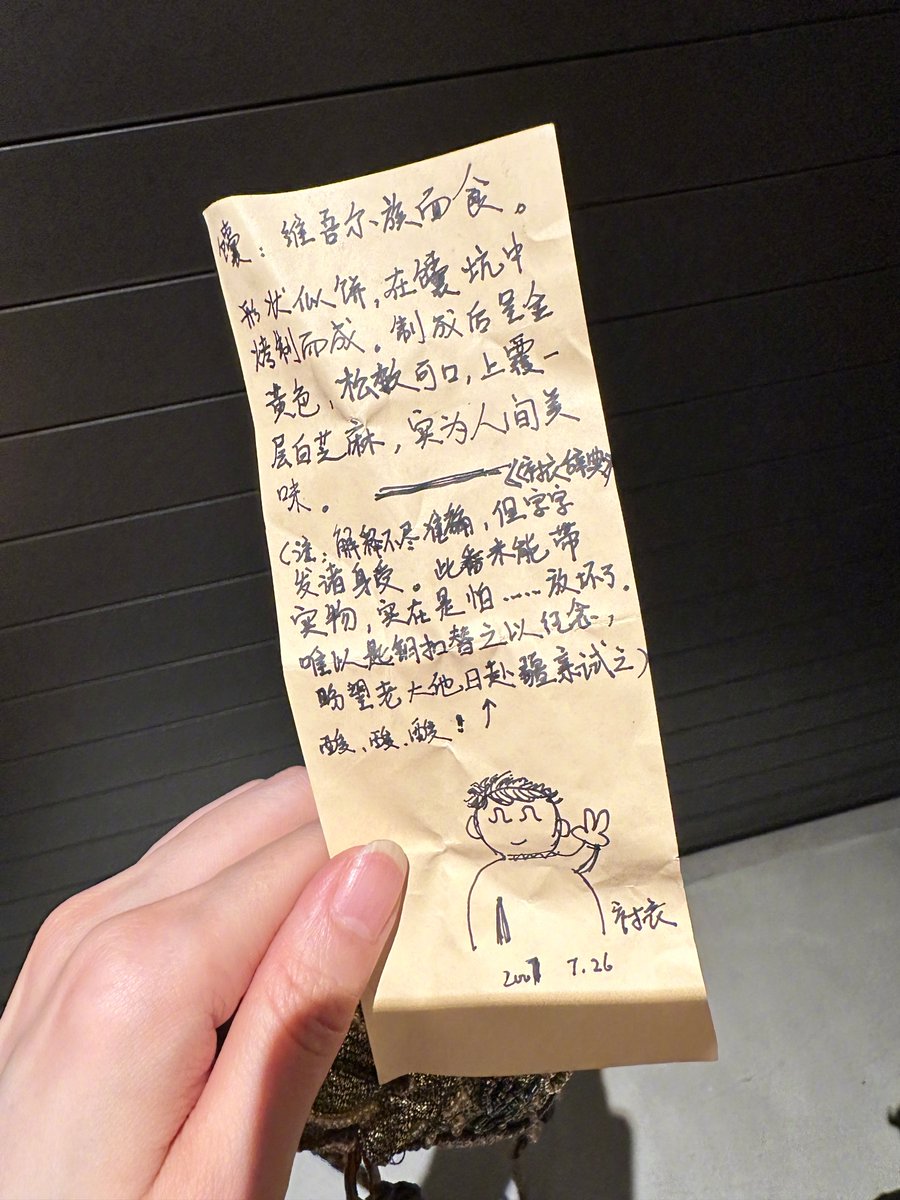 馕：维吾尔族面食。
形状似饼，在馕坑中
烤制而成。制成后呈金
黄色，松软可口，上覆一
层白芝麻，实为人间美
味。——《衬衣辞典》
（注：解释不尽准确，但字字
发诸身受。此番未能带
实物，实在是怕……放坏了。
唯以匙钥扣替之以纪念，
盼望老大他日赴疆亲试之）
酸、酸、酸！↑
衬衣
2007 7.26